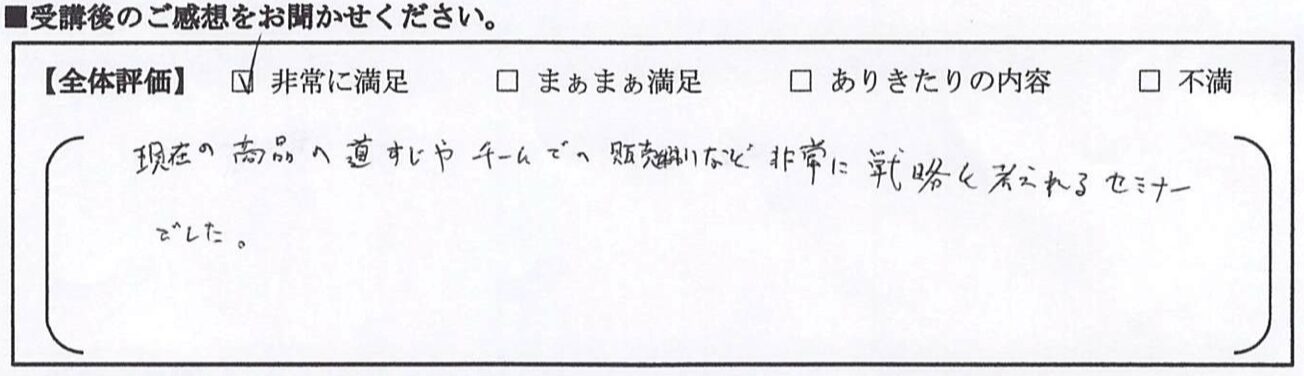 ■受講後のご感想をお聞かせください。
【全体評価】 ☑ 非常に満足 □ まぁまぁ満足 □ ありきたりの内容 □ 不満
現在の商品の道すじや チームでの 販売など 非常に 戦略を考えれるセミナー
でした。